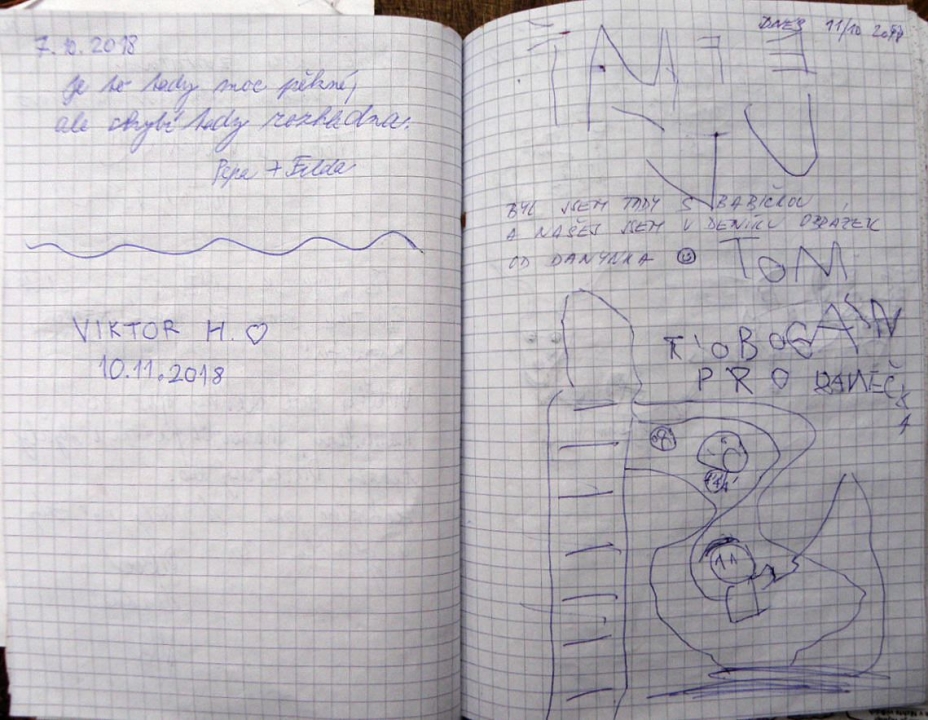 7.10.2018
Je to tady moc pěkné,
ale chybí tady rozhledna.
Pepa + Fílda
VIKTOR H. ♡
10.11.2018
DNES 11/10 2018
BYL JSEM TADY S BABIČKOU
A NAŠEL JSEM V DENÍKU OBRÁZEK
OD DANYNKA ☺ TOM
TOBOGÁN
PRO DANEČKA